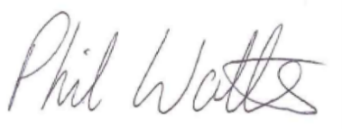 Phil Watts